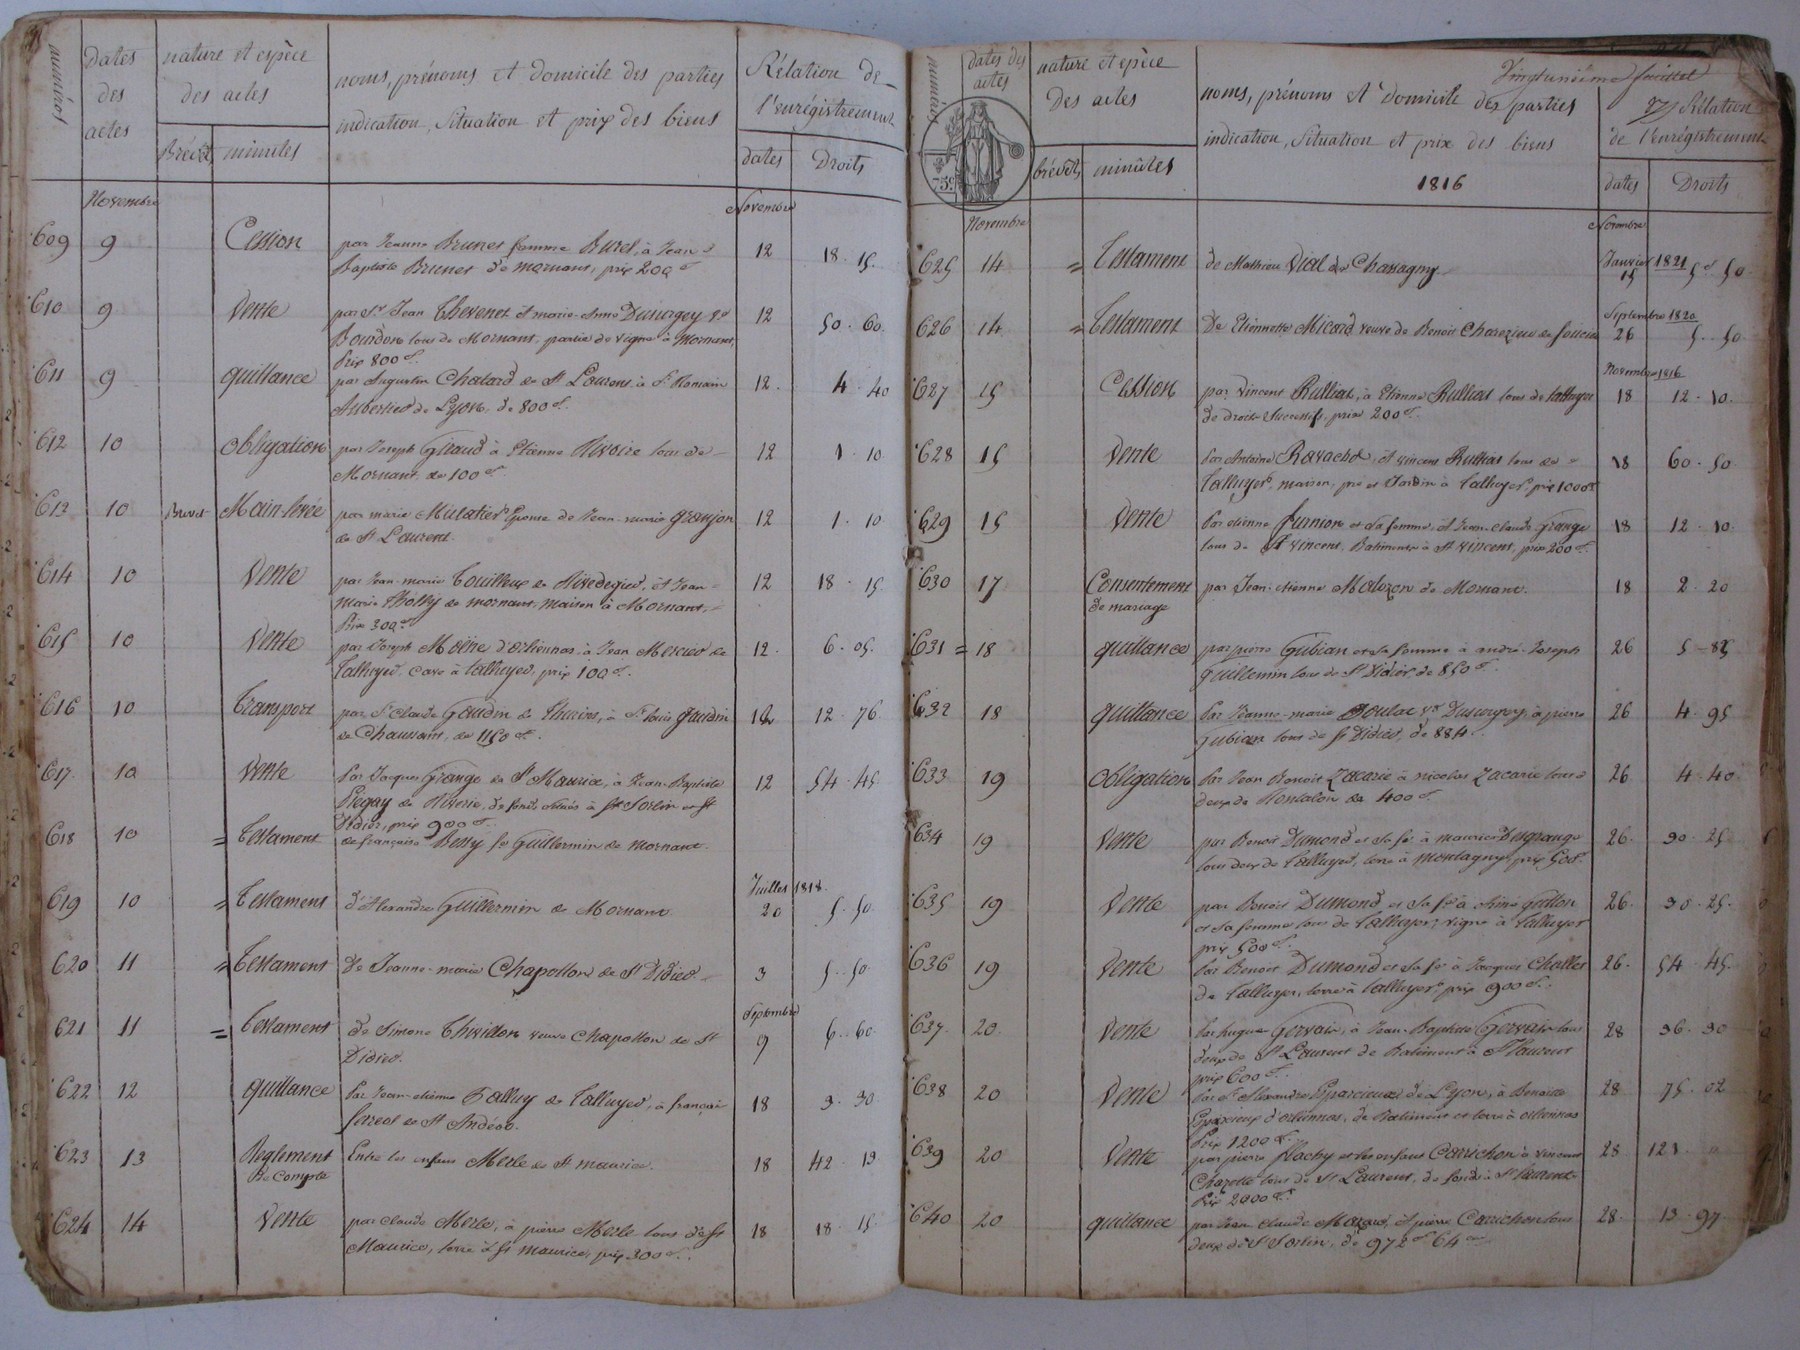 numéros
dates des actes
nature et espèce des actes
Brévet minutes
noms, prénoms et domicile des parties
indication, Situation et prix des biens
Rélation de l'enrégistrement
dates Droits
Novembre Novembre
609 9 Cession par Jeanne Brunet femme Burel, à Jean
Baptiste Brunet de Mornant, prix 200 f. 12 18 . 15.
610 9 Vente par Sr Jean Thevenet et marie
Bourdon tous de Mornant, partie de vigne à Mornant, 12 50 . 60.
Prix 800 f.
611 9 quittance par Augustin Chatard de St Laurent à Sr Romain
Aubertier de Lyon, de 800 f. 12. 4 . 40
612 10 obligation par Joseph Giraud à Etienne Rivoire tous de
Mornant, de 100 f. 12 1 . 10
613 10 Brevet Main-levée par marie Mulatier Epouse de Jean-marie Granjon
de St Laurent. 12 1 . 10
614 10 Vente par Jean-marie de Rivedegier, et Jean-
Marie Tholly de mornant, maison à Mornant, 12 18 . 15.
Prix 300 f.
615 10 Vente par Joseph d'orliennas, à Jean Mercier de
Talluyer, cave à talluyer, prix 100 f. 12. 6 . 05.
616 10 Transport par Sr Claude Gaudin de Thurins, à Sr Louis Gaudin
de Chaussant, de 1150 f. 12 12 . 76.
617. 10 Vente Par Jacques Grange de St Maurice, à Jean-Baptiste
de Riverie, de fonds situés à St Sorlin et St
Didier, prix 900 f. 12 54 . 45
618 10 = Testament de françoise Bussy fe Guillermin de mornant.
Juillet 1818.
619 10 = Testament d'Alexandre Guillermin de Mornant. 20 5 . 50.
620 11 = Testament De Jeanne-marie Chapollon de St Didier. 3 5 . 50.
Septembre
621 11 = Testament de Simone Thivillon veuve Chapollon de St
Didier. 9 6 . 60
622 12 quittance Par Jean-etienne Talluy de Talluyer, à françois
de St Andéol. 18 3 . 30
623 13 Reglement
De Compte Entre les enfans Merle de St maurice. 18 42 . 13
624 14 Vente par Claude Merle, à pierre Merle tous de St
Maurice, terre à St maurice, prix 300 f. 18 18 . 15
Vingtunième feuillet
numéros
dates des actes
nature et espèce des actes
brévets minûtes
noms, prénoms et domicile des parties
indication, Situation et prix des biens
1816
Rélation de l'enrégistrement
dates Droits
75c
Novembre Novembre
625 14 = Testament de Mathieu Vial de Chassagny. Janvier 1821
15 5 f 50.
626 14 = Testament De Etiennette Micard veuve de Benoit de Septembre 1820.
26 5 . 50
Novembre 1816
627 15 Cession par vincent Rulliat, à Etienne Rulliat tous de talluyer
de droits Successifs, prix 200 f. 18 12 . 10.
628 15 Vente Par Antoine Ravachol, et vincent Rulliat tous de
Talluyer, maison, pré et Jardin à talluyer, prix 1000 f. 18 60 . 50.
629 15 Vente Par etienne furnion et sa femme, et Jean-claude Grange
tous de St vincent, Batiments à St vincent, prix 200 f. 18 12 . 10.
630 17 Consentement
de mariage par Jean-etienne de Mornant. 18 2 . 20
631 = 18 quittance par pierre Gubian et sa femme à andré-Joseph
Guillermin tous de St Didier, de 850 f. 26 5 - 85
632 18 quittance Par Jeanne-marie ve à pierre
Gubian tous de St Didier, de 884. 26 4 . 95
633 19 Obligation Par Jean Benoit Zacarie à nicolas Zacarie tous
deux de Rontalon de 400 f. 26 4 . 40
634 19 Vente par Benoit Dumond et sa fe à maurice Desgrange
tous deux de talluyer, terre à montagny, prix 500 f. 26. 30 . 25
635 19 Vente par Benoit Dumond et sa fe à
et sa femme tous de talluyer, vigne à talluyer 26. 30 . 25.
prix 500 f.
636 19 Vente Par Benoit Dumond et sa fe à Jacques Challet
de talluyer, terre à talluyer, prix 900 f. 26. 54 . 45.
637. 20. Vente Par hugue Gervais, à Jean-Baptiste Gervais tous
deux de St Laurent de Batiment à St Laurent 28 36 . 30
prix 600 f.
638 20 Vente Par Sr Alexandre Eparcieux de Lyon, à Benoite
Eparcieux d'orliennas, de Batiment et terre à orliennas 28 75 . 02
Prix 1200 f.
639 20 Vente par pierre flachy et les enfans Carrichon à vincent
Chazotte tous de St Laurent, de fonds à St Laurent 28 121 . "
Prix 2000 f.
640 20 quittance par Jean Claude et pierre Carrichon tous
deux de St Sorlin, de 972 f 64 c. 28. 13 . 97